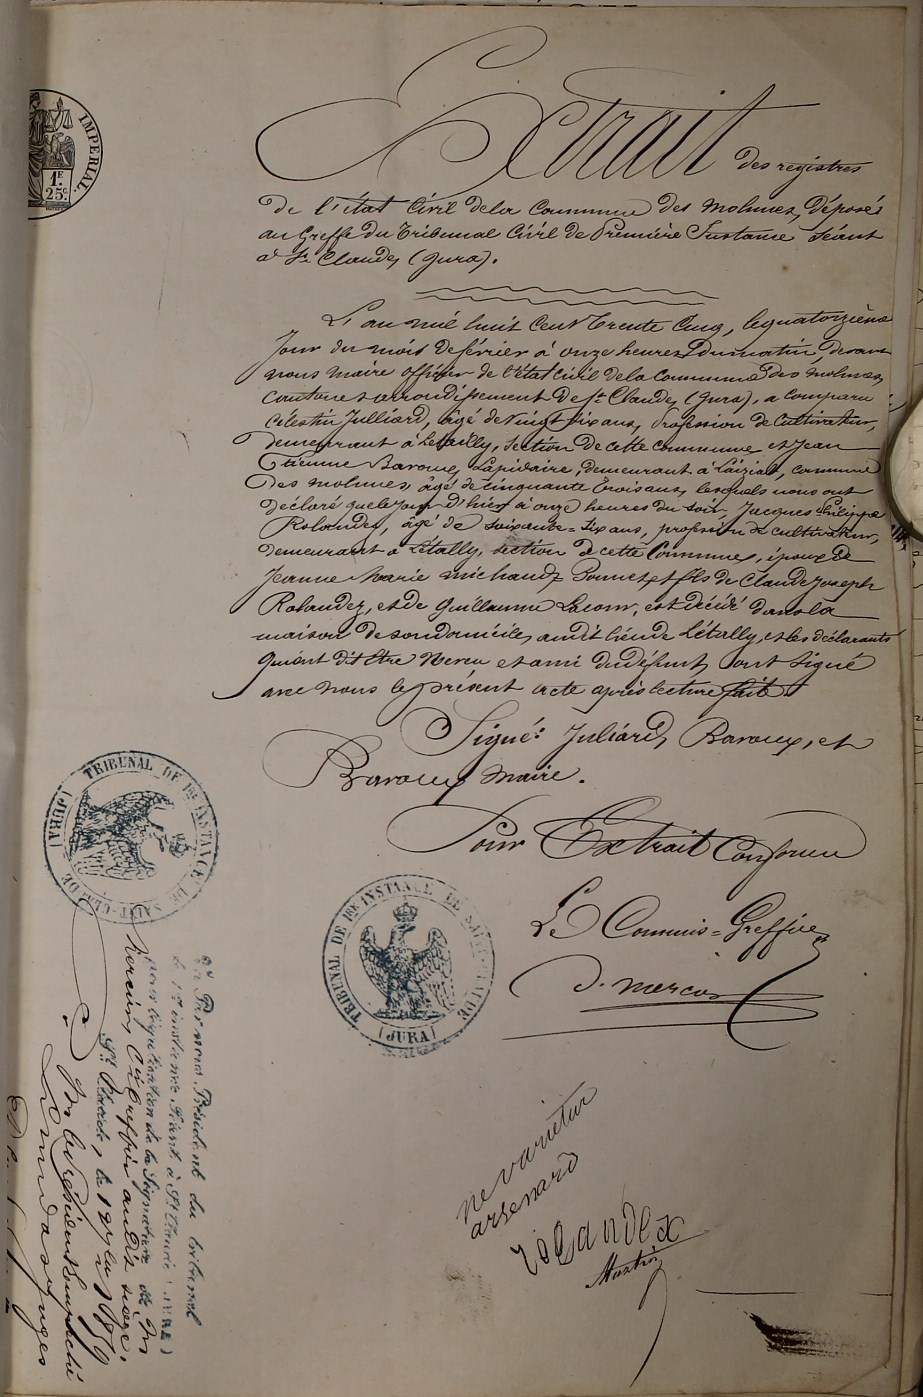 IMPERIAL.
1F.
25c.
Extrait des registres
de l'état Civil de la Commune des Molunes, Déposés
au Greffe du Tribunal Civil de Première Instance Séant
à St. Claude, (Jura).
L'an mil huit Cent trente Cinq, le quatorzième
Jour du mois de février à onze heures du matin, devant
nous maire officier de l'état civil de la Commune des molunes,
canton et arrondissement de St Claude, (Jura), a comparu
Célestin Julliard, âgé de vingt six ans, profession de Cultivateur,
demeurant à Létally, section de cette commune et Jean
Etienne Baroux, Lapidaire, demeurant à Laiziat, commune
des molunes, âgé de cinquante trois ans, lesquels nous ont
déclaré que le jour d'hier à onze heures du soir, Jacques Philippe
Rolandez, âgé de soixante=six ans, profession de cultivateur,
demeurant à Létally, section de cette Commune, époux de
Jeanne Marie michaud, Ponnet et fils de Claude Joseph
Rolandez, et de Guillaume Lacour, est décédé dans la
maison de son domicile, audit lieu de Létally, et les déclarants
qui ont dit être Neveu et ami du défunt, ont signé
avec nous le présent acte après lecture faite.
Signé: Juliard, Baroux, et
Baroux maire.
Pour Extrait Conforme
Le Commis=Greffier
D. Mercier
TRIBUNAL DE 1RE INSTANCE DE SAINT-CLAUDE (JURA)
TRIBUNAL DE 1RE INSTANCE DE SAINT-CLAUDE (JURA)
Vu Par nous Président du tribunal
de 1re instance Séant à St Claude (JURA)
pour légalisation de la Signature de Mr
Mercier, Cis Greffier audit siège.
St Claude, le 1859
Le Président empêché
L'un des juges
ne varietur
arsenard
rolandex
Martin